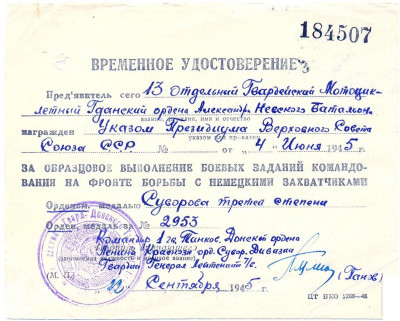 184507
ВРЕМЕННОЕ УДОСТОВЕРЕНИЕ
Пред'явитель сего 13 отдельный Гвардейский Мотоцик-
летный Гданский ордена Александр. Невского Баталион
звание, фамилия, имя и отчество
награжден Указом Президиума Верховного Совета
Союза ССР. № от "4" Июня 1945 г.
ЗА ОБРАЗЦОВОЕ ВЫПОЛНЕНИЕ БОЕВЫХ ЗАДАНИЙ КОМАНДО-
ВАНИЯ НА ФРОНТЕ БОРЬБЫ С НЕМЕЦКИМИ ЗАХВАТЧИКАМИ
Орденом, медалью Суворова третей степени
Орден, медаль за № 2953
Командир 1 гв. Танков. Донской ордена
Ленина Краснозн. орд. Сувор. Дивизии
Гвардии Генерал Лейтенант т/в.
(Панов)
(М. П.) Сентября 1945 г.